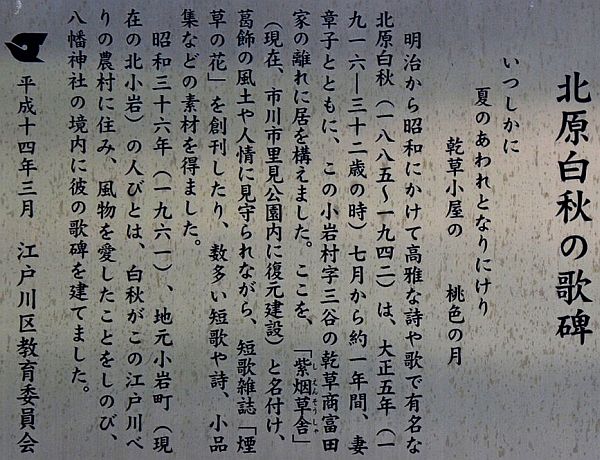 北原白秋の歌碑
いつしかに
夏のあわれとなりにけり
乾草小屋の　桃色の月
明治から昭和にかけて高雅な詩や歌で有名な
北原白秋（一八八五〜一九四二）は、大正五年（一
九一六―三十二歳の時）七月から約一年間、妻
章子とともに、この小岩村字三谷の乾草商富田
家の離れに居を構えました。ここを、「紫烟草舎」
しえんそうしゃ
（現在、市川市里見公園内に復元建設）と名付け、
葛飾の風土や人情に見守られながら、短歌雑誌「煙
草の花」を創刊したり、数多い短歌や詩、小品
集などの素材を得ました。
昭和三十六年（一九六一）、地元小岩町（現
在の北小岩）の人びとは、白秋がこの江戸川べ
りの農村に住み、風物を愛したことをしのび、
八幡神社の境内に彼の歌碑を建てました。
平成十四年三月　江戸川区教育委員会